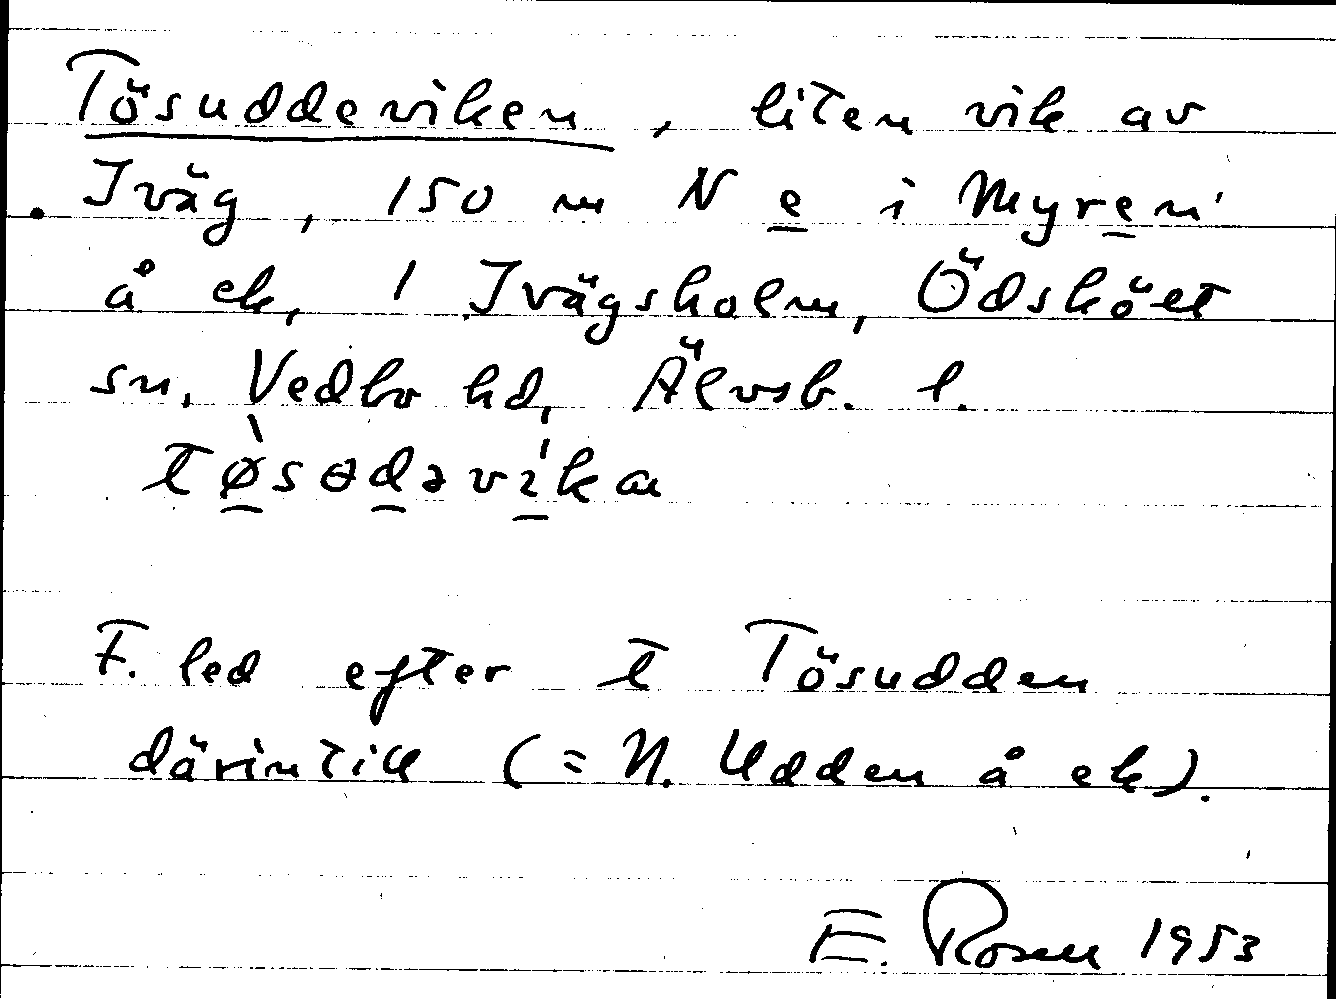 Tösuddeviken, liten vik av
Iväg, 150 m N e i Myren'
å ek, 1 Ivägsholm, Ödsköet
sn, Vedbo hd, Älvsb. l.
tø̀sɵdəvíka
F. led efter t Tösudden
därintill (= N. Udden å ek).
E. Rosell 1953